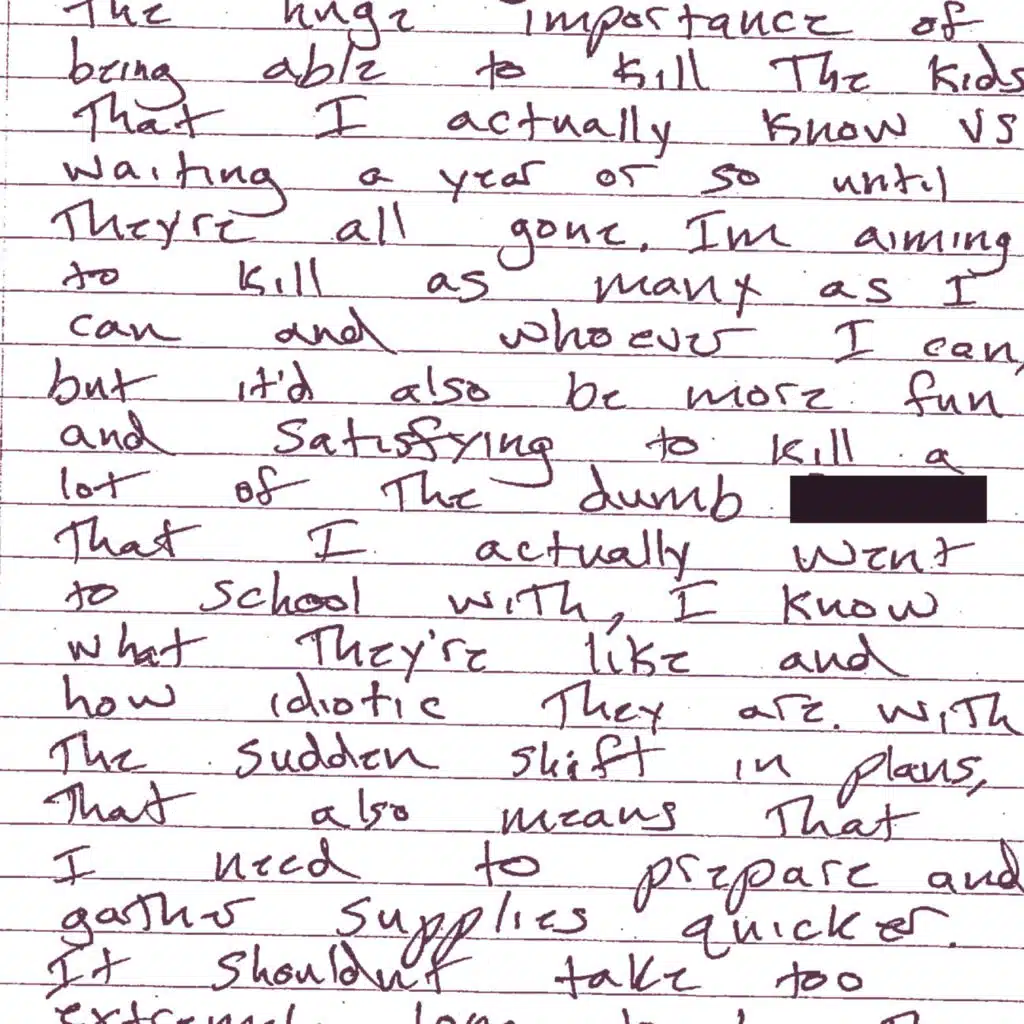 The huge importance of
being able to kill The kids
That I actually know vs
waiting a year or so until
They're all gone. I'm aiming
to kill as many as I
can and whoever I can,
but it'd also be more fun
and satisfying to kill a
lot of The dumb
That I actually went
to school with, I know
what They're like and
how idiotic They are. With
The sudden shift in plans,
That also means That
I need to prepare and
gather supplies quicker.
It shouldn't take too